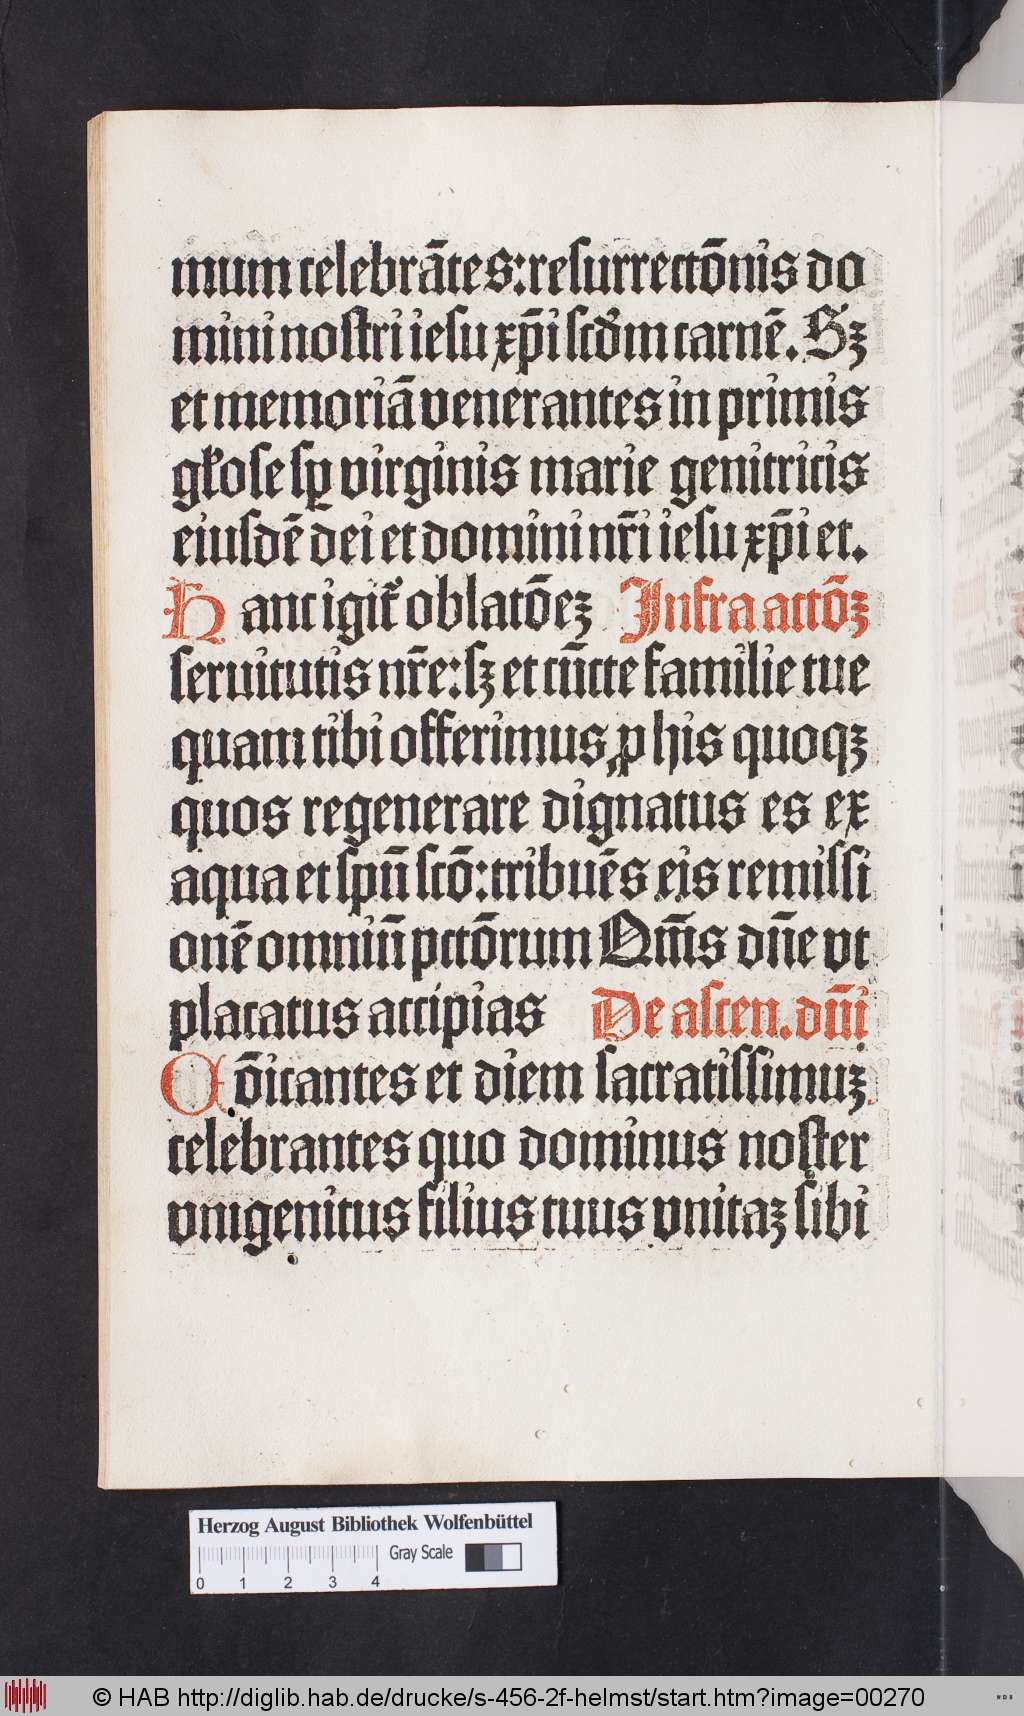 mum celebrātes: resurrectōnis do
mini nostri iesu xp̄i scd̄m carnē. Sꝫ
et memoriā venerantes in primis
gl̄ose sp̄ virginis marie genitricis
eiusdē dei et domini nr̄i iesu xp̄i et.
Hanc igit᷑ oblatōeꝫ Infra actōꝫ
seruitutis nr̄e: sꝫ et cūcte familie tue
quam tibi offerimus, ꝓ his quoqꝫ
quos regenerare dignatus es ex
aqua et spū scō: tribuēs eis remissi
onē omniū pctōrum Qm̄s dn̄e vt
placatus accipias De ascen. dn̄i
Cōicantes et diem sacratissimuꝫ
celebrantes quo dominus noster
vnigenitus filius tuus vnitaꝫ sibi
Herzog August Bibliothek Wolfenbüttel
Gray Scale
0 1 2 3 4
© HAB http://diglib.hab.de/drucke/s-456-2f-helmst/start.htm?image=00270